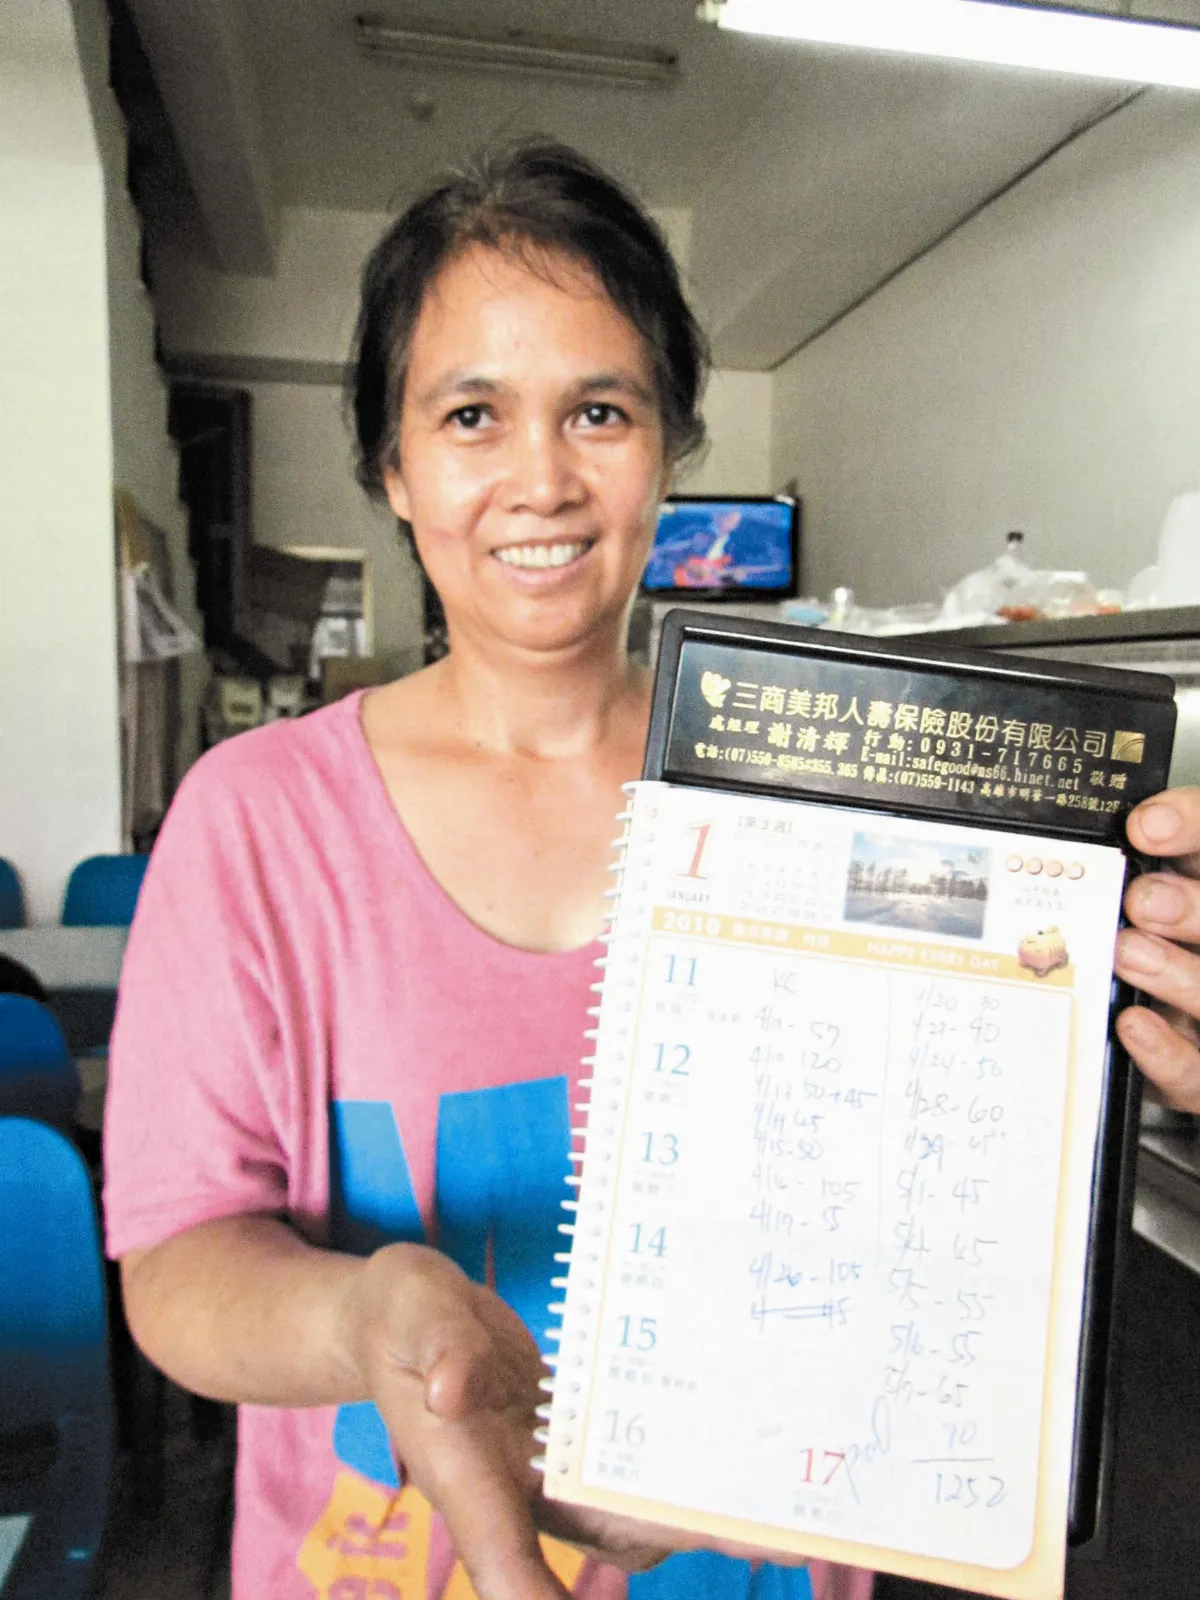 三商美邦人壽保險股份有限公司
處經理 謝清輝 行動:0931-717665
E-mail:safegood@ms66.hinet.net 敬贈
電話:(07)550-8585#355.365 傳真:(07)559-1143 高雄市明華一路258號12F
1
[第3週]
JANUARY
2010
HAPPY EVERY DAY
11
星期一
12
星期二
13
星期三
14
星期四
15
星期五
16
星期六
17
星期日
KC
4/9 - 57
4/10 120
4/13 50+45
4/14 45
4/15-50
4/16 - 105
4/17 - 55
4/26 - 105
4/20 30
4/22- 40
4/24 - 50
4/28- 60
4/29 - 45
5/1- 45
5/4 45
5/5 - 55
5/6 - 55
5/7 - 65
70
1252